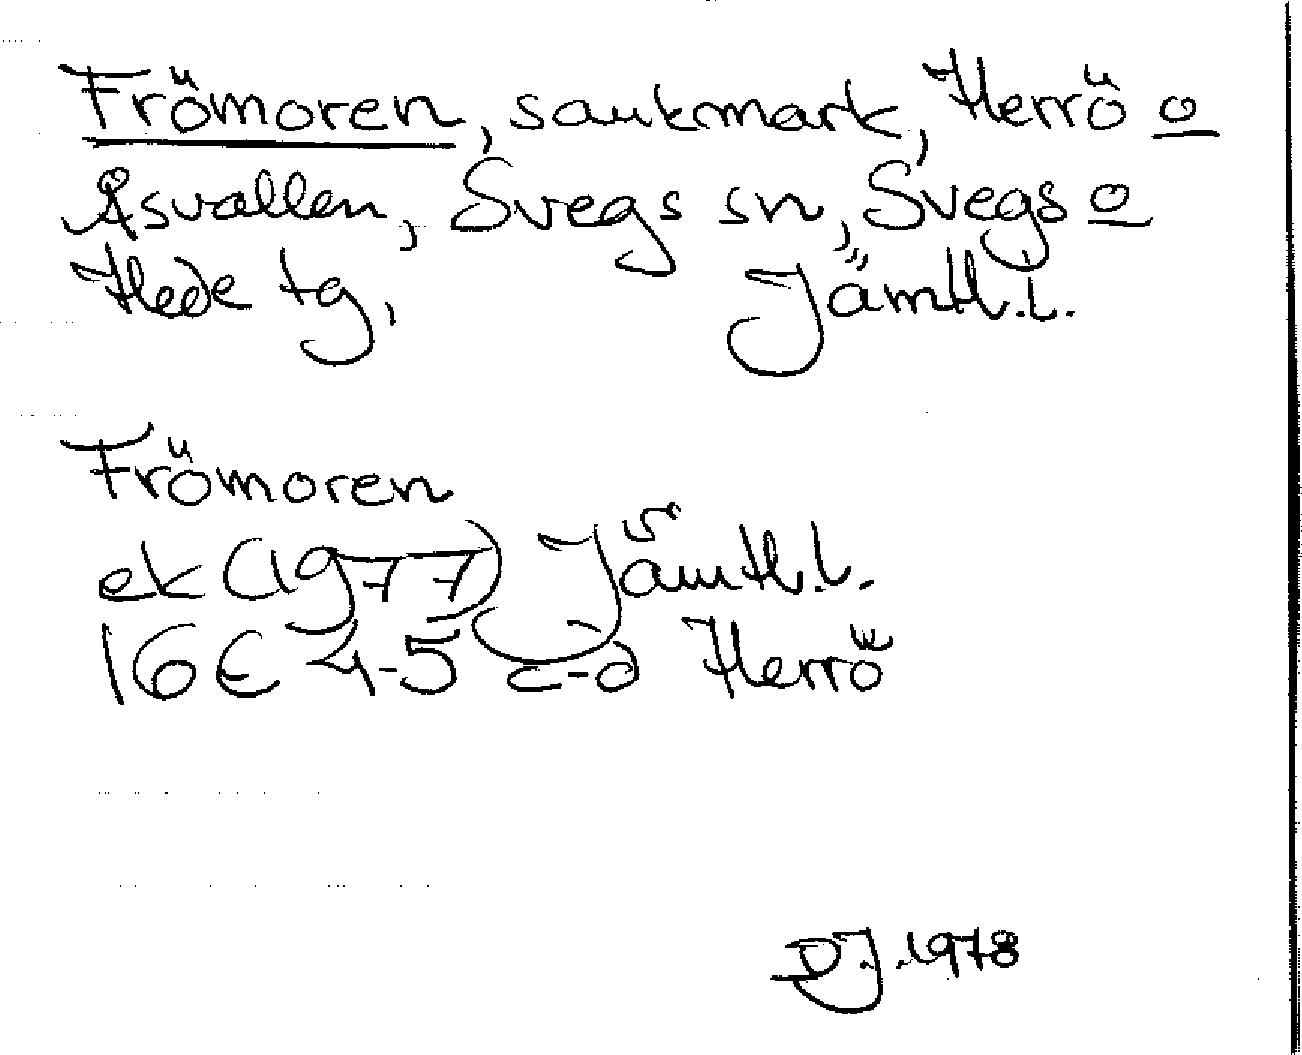 Frömoren, sankmark, Herrö o
Åsvallen, Svegs sn, Svegs o
Hede tg, Jämtl.l.
Frömoren
ek (1977) Jämtl.l.
16E 4-5 c-d Herrö
DJ.1978